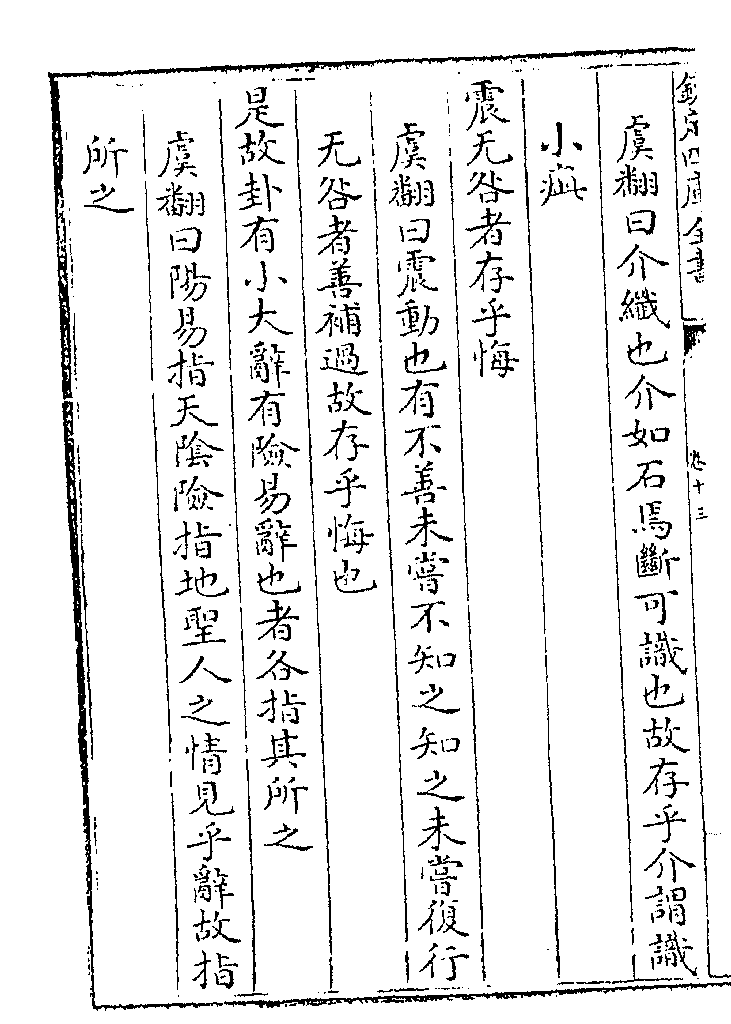 欽定四庫全書
卷十三
虞翻曰介纎也介如石焉斷可識也故存乎介謂識
小疵
震无咎者存乎悔
虞翻曰震動也有不善未嘗不知之知之未嘗復行
无咎者善補過故存乎悔也
是故卦有小大辭有險易辭也者各指其所之
虞翻曰陽易指天隂險指地聖人之情見乎辭故指
所之